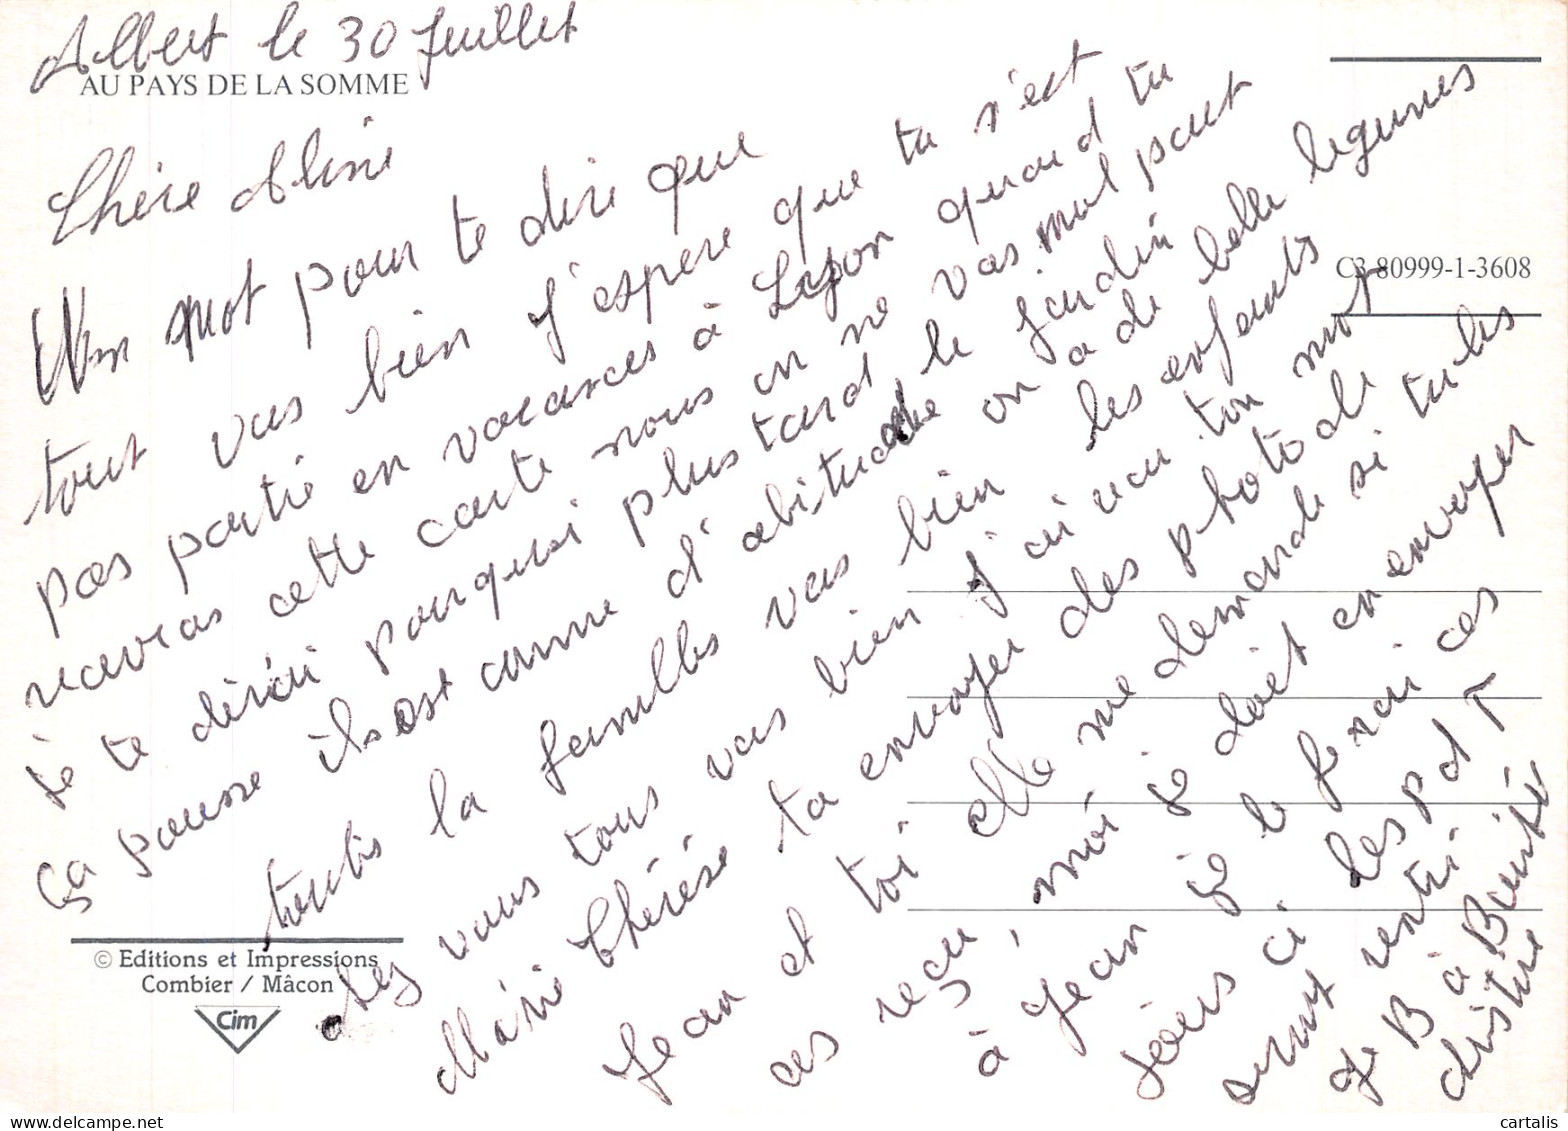 Albert le 30 Juillet
AU PAYS DE LA SOMME
Chère Aline
Un mot pour te dire que
tout vas bien J'espere que tu s'est
pas partie en vacances à quand tu
recevras cette carte nous on ne vas mal part
Je te dirai pourquoi plus tard le jardin
ça pousse ils est comme d'abitude on a de belle legumes
toutes la familles vas bien les enfants
chez vous tous vas bien J'ai reçu ton mot
Marie Thérèse ta envoyer des photo de
Jean et toi elle me demande si tu les
as reçu, moi je doit en envoyer
à Jean je le ferai ces
jours ci les p d T
seront rentré
Je B à
C3 80999-1-3608
© Editions et Impressions
Combier / Mâcon
Cim
cartalis